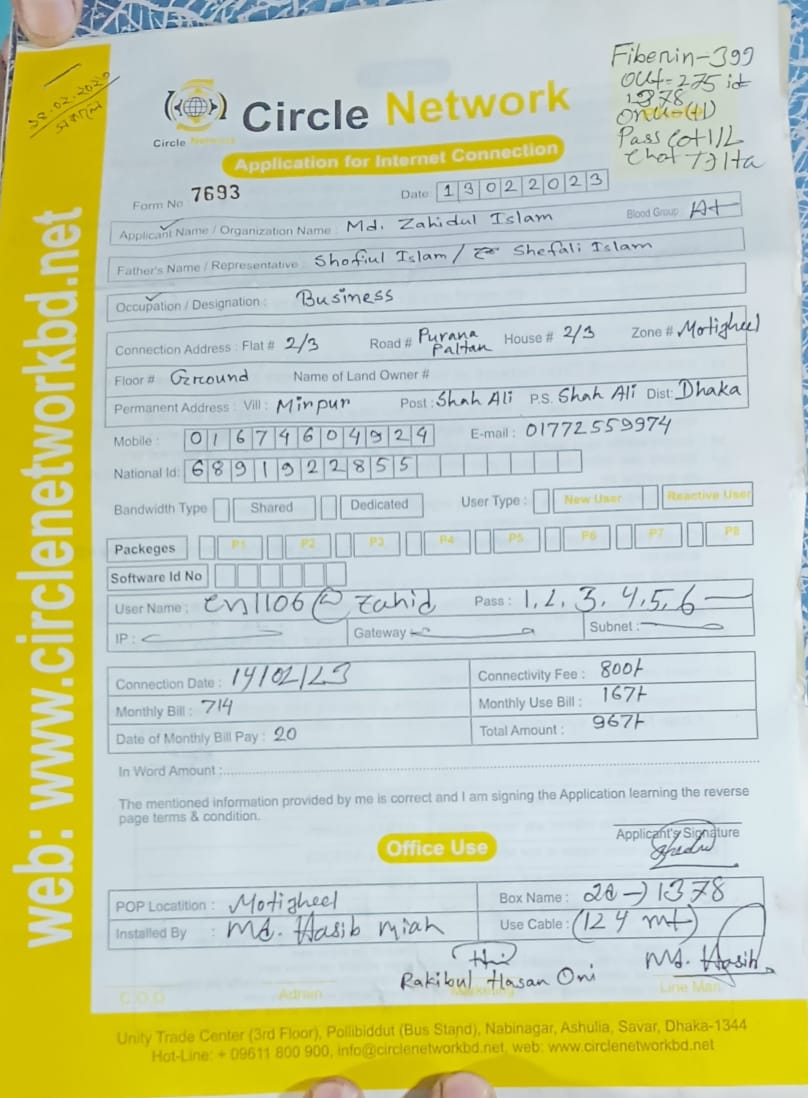 Fiberin-399
out=275 id
1378
onu(+1)
Pass
28.02.2020
Circle Network
Circle Network
Application for Internet Connection
Form No 7693
Date: 13022023
Applicant Name / Organization Name : Md. Zahidul Islam
Blood Group: A+
Father's Name / Representative : Shofiul Islam / Shefali Islam
Occupation / Designation : Business
Connection Address : Flat # 2/3 Road # Purana Paltan House # 2/3 Zone # Motigheel
Floor # Ground Name of Land Owner #
Permanent Address : Vill : Mirpur Post : Shah Ali P.S. Shah Ali Dist: Dhaka
Mobile : 01674604924 E-mail : 01772559974
National Id: 6891922855
Bandwidth Type Shared Dedicated User Type : New User Reactive User
Packeges P1 P2 P3 P4 P5 P6 P7 P8
Software Id No
User Name : cn1106@zahid Pass : 1,2,3,4,5,6
IP : Gateway Subnet :
Connection Date : 14/02/23 Connectivity Fee : 800/-
Monthly Bill : 714 Monthly Use Bill : 167/-
Date of Monthly Bill Pay : 20 Total Amount : 967/-
In Word Amount :
The mentioned information provided by me is correct and I am signing the Application learning the reverse
page terms & condition.
Applicant's Signature
Office Use
POP Locatition : Motigheel Box Name : 20→1378
Installed By : Md. Hasib Miah Use Cable : (124 mt)
Rakibul Hasan Oni Md. Hasib
C.O.D Admin Marketing Line Man
Unity Trade Center (3rd Floor), Pollibiddut (Bus Stand), Nabinagar, Ashulia, Savar, Dhaka-1344
Hot-Line: + 09611 800 900, info@circlenetworkbd.net, web: www.circlenetworkbd.net
web: www.circlenetworkbd.net